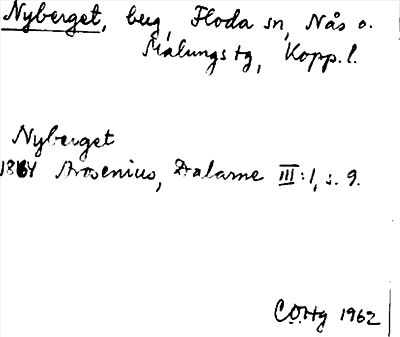 Nyberget, berg, Floda sn, Nås o.
Malungs tg, Kopp. l.
Nyberget
1864 Arosenius, Dalarne III:1, s. 9.
1962